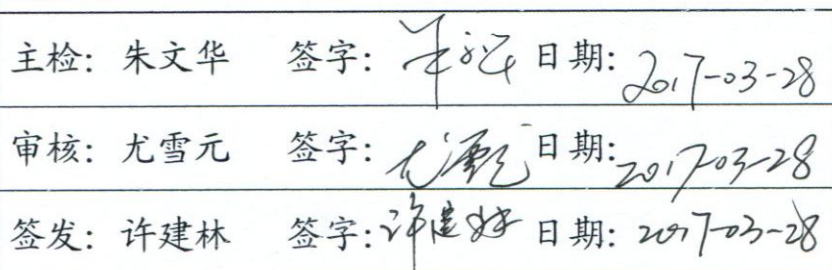 主检: 朱文华 签字: 朱文华 日期: 2017-03-28
审核: 尤雪元 签字: 尤雪元 日期: 2017-03-28
签发: 许建林 签字: 许建林 日期: 2017-03-28